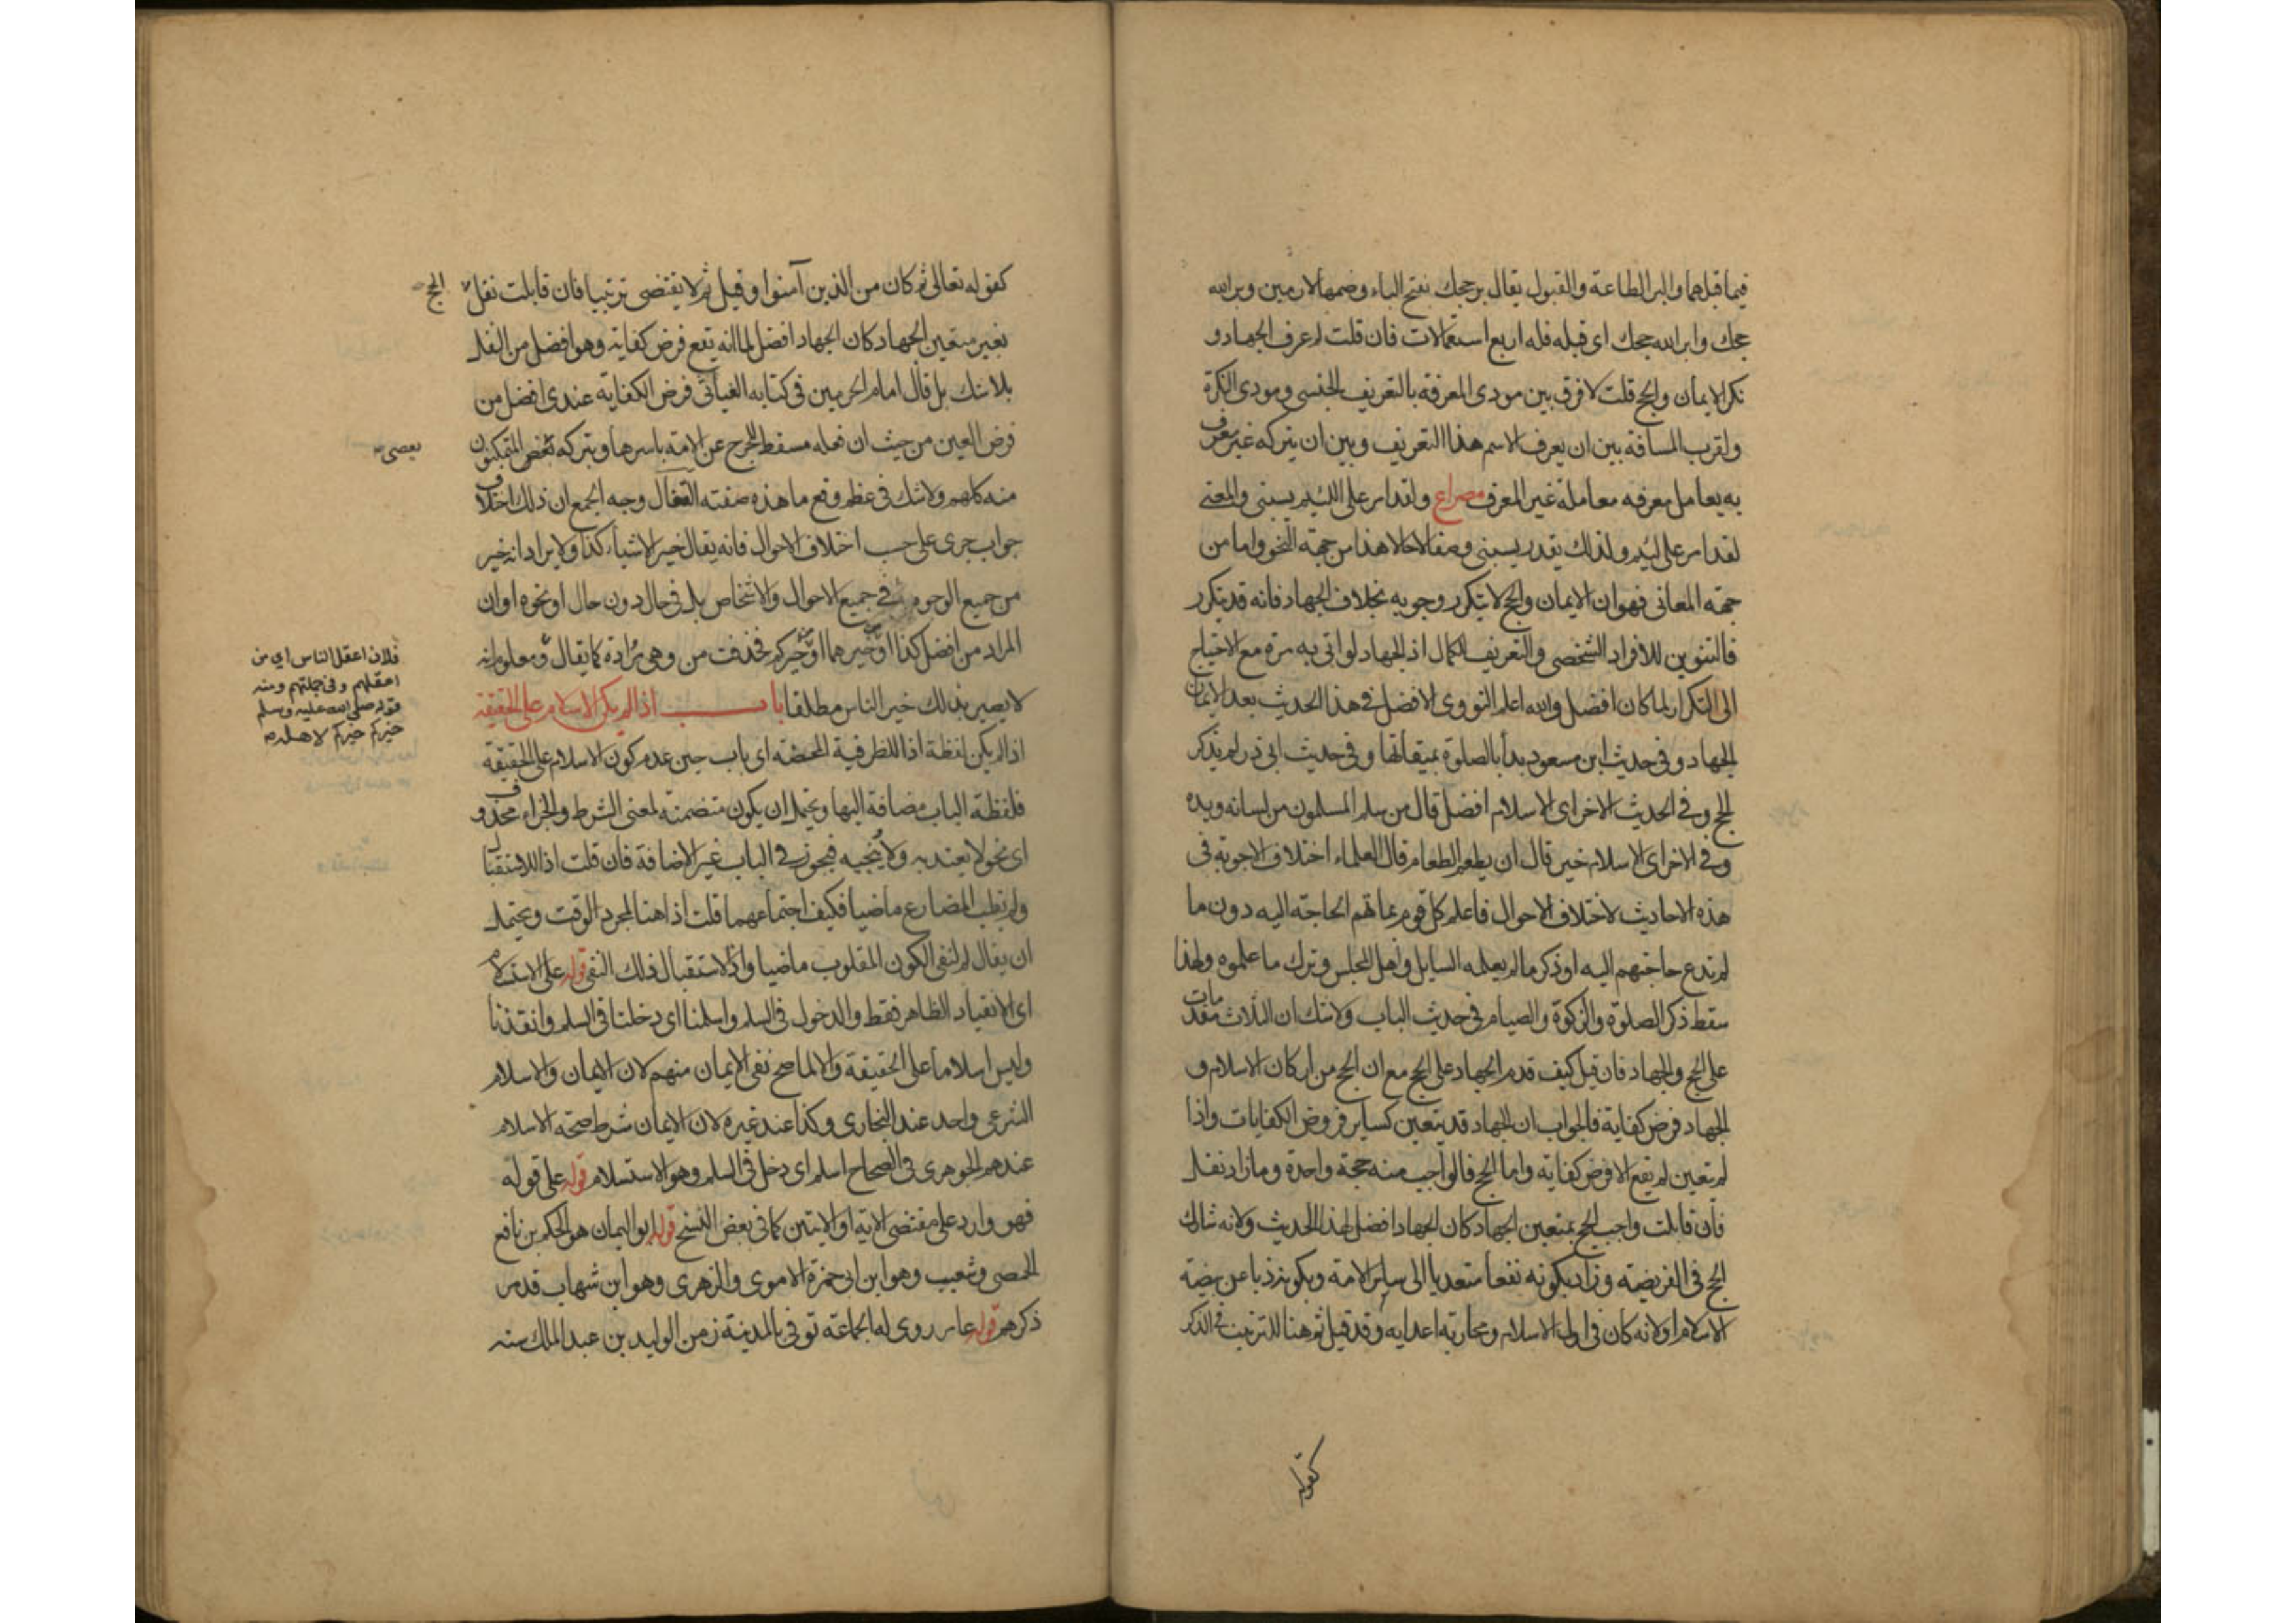 فيما قبلهما والبر الطاعة والقبول يقال بر حجك بفتح الباء وضمها لازمين وبر الله
حجك وابر الله حجك اى قبله فله اربع استعمالات فان قلت لم عرف الجهاد و
نكر الايمان والحج قلت لا فرق بين مودى المعرفة بالتعريف الجنسى ومودى النكرة
ولقرب المسافة بين ان يعرف الاسم هذا التعريف وبين ان يتركه غير معرف
به يعامل معرفه معاملة غير المعرف مصراع ولقد امر على اللئيم يسبنى والمعنى
لقد امر على لئيم ولذلك يقدر يسبنى وصفا لا حالا هذا من جهة النحو واما من
جهة المعانى فهو ان الايمان والحج لا يتكرر وجوبه بخلاف الجهاد فانه قد يتكرر
فالتنوين للافراد الشخصى والتعريف للكمال اذ الجهاد لو اتى به مرة مع الاحتياج
الى التكرار لما كان افضل والله اعلم النووى الافضل فى هذا الحديث بعد الايمان
الجهاد وفى حديث ابن مسعود بدأ بالصلوة بميقاتها وفى حديث ابى ذر لم يذكر
الحج وفى الحديث الاخر اى الاسلام افضل قال من سلم المسلمون من لسانه ويده
وفى الاخر اى الاسلام خير قال ان يطعم الطعام قال العلماء اختلاف الاجوبة فى
هذه الاحاديث لاختلاف الاحوال فاعلم كل قوم بما بهم الحاجة اليه دون ما
لم تدع حاجتهم اليه او ذكر ما لم يعلمه السايل واهل المجلس وترك ما علموه ولهذا
سقط ذكر الصلوة والزكوة والصيام فى حديث الباب ولا شك ان الثلاث مقدمات
على الحج والجهاد فان قيل كيف قدم الجهاد على الحج مع ان الحج من اركان الاسلام و
الجهاد فرض كفاية فالجواب ان الجهاد قد يتعين كساير فروض الكفايات واذا
لم يتعين لم يقع الا فرض كفاية واما الحج فالواجب منه حجة واحدة وما زاد نفل
فان قابلت واجب الحج بمتعين الجهاد كان الجهاد افضل لهذا الحديث ولانه شارك
الحج فى الفريضة وزاد بكونه نفعا متعديا الى ساير الامة وبكونه ذبا عن بيضة
الاسلام او لانه كان فى اول الاسلام ومحاربة اعدايه وقد قيل ثم هنا للترتيب فى الذكر
كقوله
كقوله تعالى ثم كان من الذين آمنوا وقيل ثم لا يقتضى ترتيبا فان قابلت نفل
الحج
بغير متعين الجهاد كان الجهاد افضل لما انه يقع فرض كفاية وهو افضل من النفل
بلا شك بل قال امام الحرمين فى كتابه الغياثى فرض الكفاية عندى افضل من
فرض العين من حيث ان فعله مسقط للحرج عن الامة باسرها وبتركه المتمكنون
يعصى
منه كلهم ولا شك فى عظم وقع ما هذه صفته القفال وجه الجمع ان ذلك اختلاف
جواب جرى على حسب اختلاف الاحوال فانه يقال خير الاشياء كذا ولا يراد انه خير
من جميع الوجوه فى جميع الاحوال والاشخاص بل فى حال دون حال او نحوه او ان
المراد من افضل كذا او خيرهما او خيركم فحذفت من وهى مرادة كما يقال ومعلوم انه
فلان اعقل الناس اى من
اعقلهم وفى جملتهم ومنه
قوله صلى الله عليه وسلم
خيركم خيركم لاهله
لا يصير بذلك خير الناس مطلقا باب اذا لم يكن الاسلام على الحقيقة
اذا لم يكن لفظة اذا للظرفية المحضة اى باب حين عدم كون الاسلام على الحقيقة
فلفظة الباب مضافة اليها ويحتمل ان يكون متضمنة لمعنى الشرط والجزاء محذوف
اى نحو لا يعتد به ولا ينجيه فيجوز فى الباب غير الاضافة فان قلت اذا للاستقبال
ولم لقلب المضارع ماضيا فكيف اجتماعهما قلت اذا هنا لمجرد الوقت ويحتمل
ان يقال لم لنفى الكون المقلوب ماضيا واذا لاستقبال ذلك النفى قوله على الاستسلام
اى الانقياد الظاهر فقط والدخول فى السلم واسلمنا اى دخلنا فى السلم وانقدنا
وليس اسلاما على الحقيقة والا لما صح نفى الايمان منهم لان الايمان والاسلام
الشرعى واحد عند البخارى وكذا عند غيره لان الايمان شرط صحة الاسلام
عندهم الجوهرى فى الصحاح اسلم اى دخل فى السلم وهو الاستسلام قوله على قوله
فهو وارد على مقتضى الاية او الايتين كما فى بعض النسخ قوله ابو اليمان هو الحكم بن نافع
الحمصى وشعيب وهو ابن ابى حمزة الاموى والزهرى وهو ابن شهاب قد مر
ذكرهم قوله عامر روى له الجماعة توفى بالمدينة زمن الوليد بن عبد الملك سنة